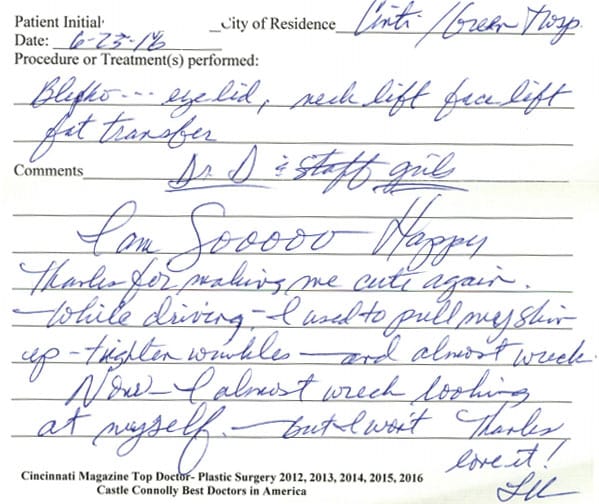 Patient Initial City of Residence Cinti / Green Twsp.
Date: 6-23-16
Procedure or Treatment(s) performed:
Blepho --- eyelid, neck lift face lift
fat transfer
Comments Dr. D & staff girls
I am Sooooo Happy
Thanks for making me cute again.
- While driving - I used to pull my skin
up - tighten wrinkles - and almost wreck.
Now - I almost wreck looking
at myself. - but I won't Thanks
love it!
Cincinnati Magazine Top Doctor- Plastic Surgery 2012, 2013, 2014, 2015, 2016
Castle Connolly Best Doctors in America